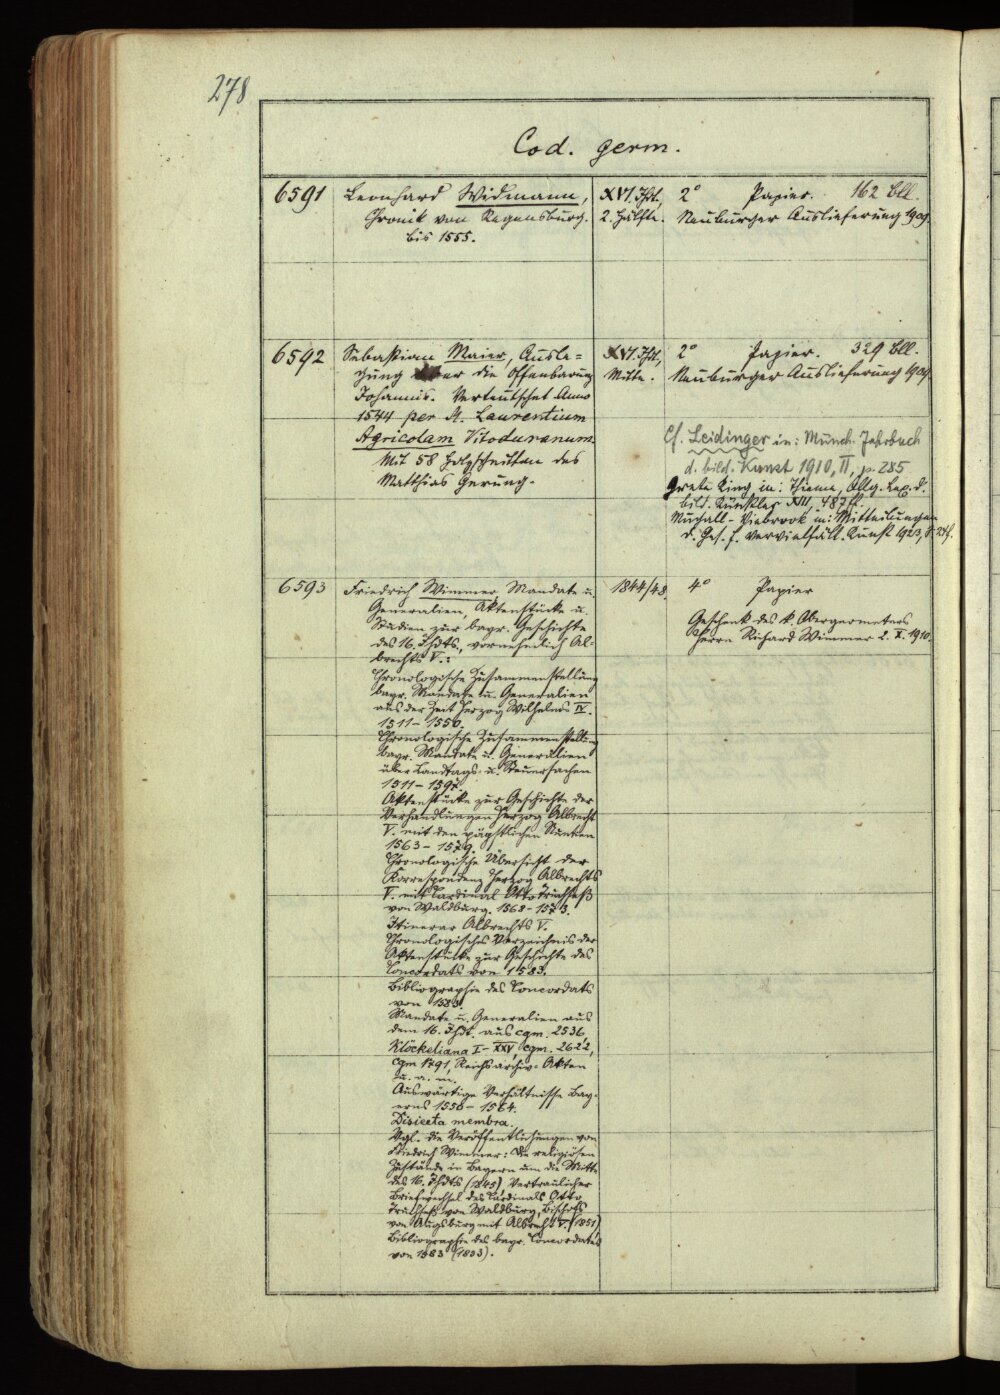 278
Cod. germ.
6591
Leonhard Widmann,
Chronik von Regensburg.
bis 1555.
XVI. Jhdt.,
2. Hälfte.
2° Papier. 162 Bll.
Neuburger Auslieferung 1909.
6592
Sebastian Maier, Ausle=
gung über die Offenbarung
Johannis. Verteutschet Anno
1544 per M. Laurentium
Agricolam Vitoduranum
Mit 58 Holzschnitten des
Matthias Gerung.
XVI. Jhdt.,
Mitte.
2° Papier. 329 Bll.
Neuburger Auslieferung 1909.
Cf. Leidinger in: Münch. Jahrbuch
d. bild. Kunst 1910, II, p. 285
Grete Ring in: Thieme, Allg. Lex. d.
bild. Künstler XIII, 487 ff.
in: Mitteilungen
d. Ges. f. vervielfält. Kunst 1923,
6593
Friedrich Wimmer, Mandate u.
Generalien, Aktenstücke u.
Studien zur bayr. Geschichte
des 16. Jhdts., vornehmlich Al-
brechts V.:
Chronologische Zusammenstellung
bayr. Mandate u. Generalien
aus der Zeit Herzog Wilhelms IV.
1511-1550.
Chronologische Zusammenstellung
bayr. Mandate u. Generalien
über Landtags- u. Steuersachen
1511-1597.
Aktenstücke zur Geschichte der
Verhandlungen Herzog Albrecht
V. mit den päpstlichen Nuntien
1563-1579.
Chronologische Übersicht der
Korrespondenz Herzog Albrechts
V. mit Cardinal Otto Truchseß
von Waldburg. 1568-1573.
Itinerar Albrechts V.
Chronologisches Verzeichnis der
Aktenstücke zur Geschichte des
Concordats von 1583.
Bibliographie des Concordats
von 1583.
Mandate u. Generalien aus
dem 16. Jhdt. aus cgm. 2536,
Klöckeliana I-XXV, cgm. 2622,
cgm 1791, Reichsarchiv-Akten
u. a. m.
Auswärtige Verhältnisse Bay-
erns 1550-1564.
Disiecta membra.
Vgl. die Veröffentlichungen von
Friedrich Wimmer: Die religiösen
Zustände in Bayern um die Mitte
des 16. Jhdts (1845) Vertraulicher
Briefwechsel des Cardinals Otto
Truchseß von Waldburg, Bischofs
von Augsburg mit Albrecht V. (1851)
Bibliographie des bayr. Concordates
von 1583 (1833).
1844/48.
4° Papier
Geschenk des k. Obergeometers
Herrn Richard Wimmer 2. X. 1910.